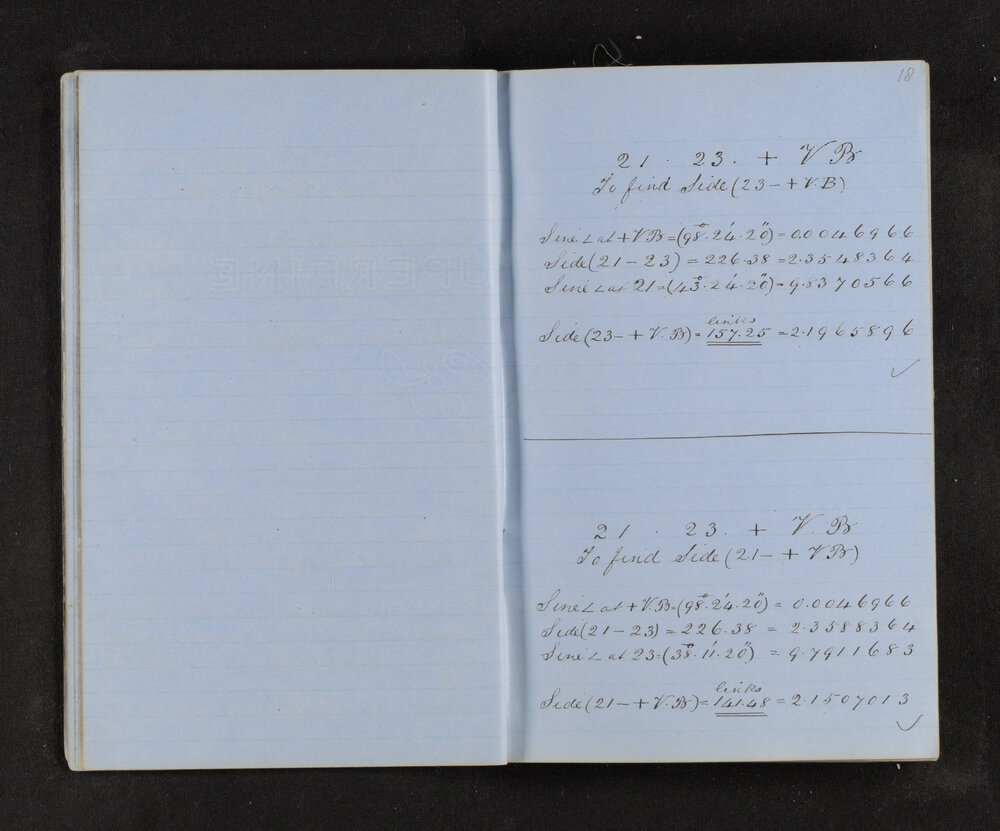 18
21 . 23 . + V B
To find Side (23 - + V.B)
Sine ∠ at + VB = (98°. 24'. 20") = 0.0046966
Side (21 - 23) = 226.38 = 2.3548364
Sine ∠ at 21 = (43°. 24'. 20") = 9.8370566
links
Side (23 - + V.B) = 157.25 = 2.1965896
✓
21 . 23 . + V. B
To find Side (21 - + VB)
Sine ∠ at + V.B = (98°. 24'. 20") = 0.0046966
Side (21 - 23) = 226.38 = 2.3548364
Sine ∠ at 23 = (38°. 11'. 20") = 9.7911683
links
Side (21 - + V.B) = 141.48 = 2.1507013
✓